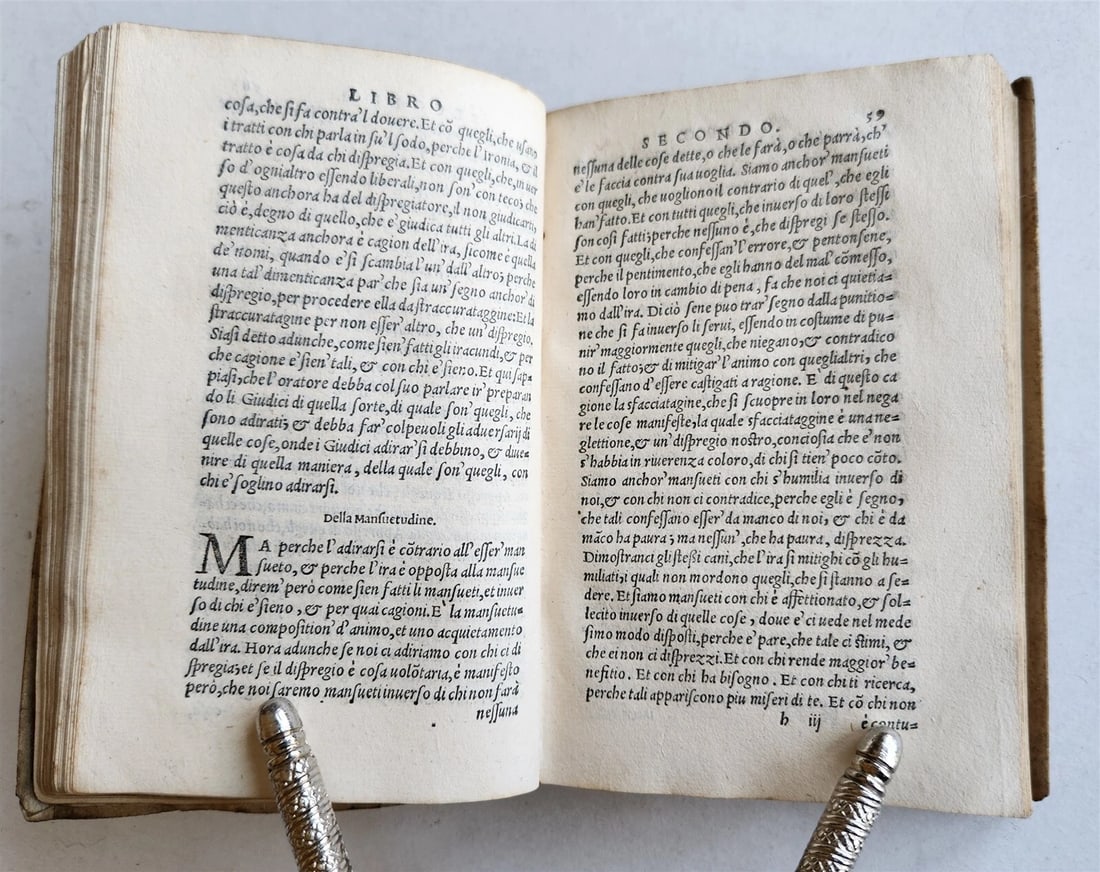 LIBRO
cosa, che si fa contra'l douere. Et cō quegli, che usano
i tratti con chi parla in su'l sodo, perche l'Ironia, & il
tratto è cosa da chi dispregia. Et con quegli, che, in uer
so d'ognialtro essendo liberali, non son' con teco; che
questo anchora ha del dispregiatore, il non giudicarti,
ciò è, degno di quello, che e' giudica tutti gli altri. La di
menticanza anchora è cagion dell'ira, sicome è quella
de' nomi, quando e' si scambia l'un' dall'altro; perche
una tal' dimenticanza par' che sia un' segno anchor' di
dispregio, per procedere ella da straccurataggine: Et la
straccuratagine per non esser' altro, che un' dispregio.
Siasi detto adunche, come sien' fatti gli iracundi, & per
che cagione e' sien' tali, & con chi e' sieno. Et qui sap=
piasi, che l'oratore debba col suo parlare ir' preparan
do li Giudici di quella sorte, di quale son' quegli, che
sono adirati; & debba far' colpeuoli gli aduersarij di
quelle cose, onde i Giudici adirar' si debbino, & diue=
nire di quella maniera, della quale son' quegli, con
chi e' soglino adirarsi.
Della Mansuetudine.
MA perche l'adirarsi è cōtrario all'esser' man
sueto, & perche l'ira è opposta alla mansue
tudine, direm' però come sien fatti li mansueti, et inuer
so di chi e' sieno, & per quai cagioni. E' la mansuetu=
dine una composition' d'animo, et uno acquietamento
dall'ira. Hora adunche se noi ci adiriamo con chi ci di
spregia; et se il dispregio è cosa uolōtaria, è manifesto
però, che noi saremo mansueti inuerso di chi non farà
nessuna
SECONDO. 59
nessuna delle cose dette, o che le farà, o che parrà, ch'
e' le faccia contra sua uoglia. Siamo anchor' mansueti
con quegli, che uogliono il contrario di quel', che egli
han' fatto. Et con tutti quegli, che inuerso di loro stessi
son così fatti; perche nessuno è, che dispregi se stesso.
Et con quegli, che confessan' l'errore, & pentonsene,
perche il pentimento, che egli hanno del mal' cōmesso,
essendo loro in cambio di pena, fa che noi ci quietia=
mo dall'ira. Di ciò sene puo trar' segno dalla punitio=
ne che si fa inuerso li serui, essendo in costume di pu=
nir' maggiormente quegli, che niegano, & contradico
no il fatto; & di mitigar' l'animo con queglialtri, che
confessano d'essere castigati a ragione. E' di questo ca
gione la sfacciatagine, che si scuopre in loro nel nega
re le cose manifeste, la quale sfacciataggine è una ne=
glettione, & un' dispregio nostro, conciosia che e' non
s'habbia in riuerenza coloro, di chi si tien' poco cōto.
Siamo anchor' mansueti con chi s'humilia inuerso di
noi, & con chi non ci contradice, perche egli è segno,
che tali confessano esser' da manco di noi; & chi è da
māco ha paura; ma nessun', che ha paura, disprezza.
Dimostranci gli stessi cani, che l'ira si mitighi cō gli hu=
miliati; i quali non mordono quegli, che si stanno a se=
dere. Et siamo mansueti con chi è affettionato, & sol=
lecito inuerso di quelle cose, doue e' ci uede nel mede
simo modo disposti, perche e' pare, che tale ci stimi, &
che ei non ci disprezzi. Et con chi rende maggior' be=
nefitio. Et con chi ha bisogno. Et con chi ti ricerca,
perche tali appariscono piu miseri di te. Et cō chi non
h iij è contu=